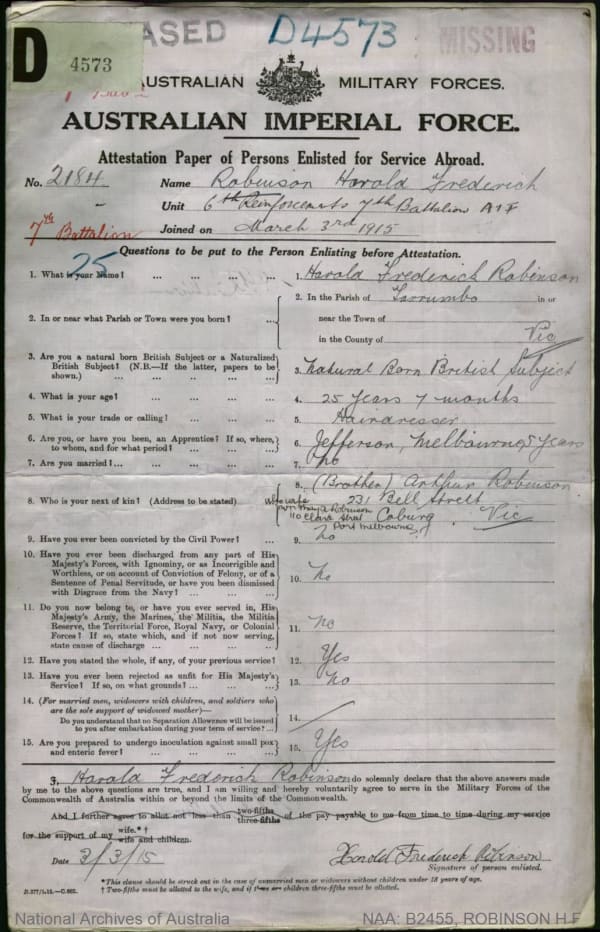 D
4573
ASED
D4573
MISSING
AUSTRALIAN MILITARY FORCES.
AUSTRALIAN IMPERIAL FORCE.
Attestation Paper of Persons Enlisted for Service Abroad.
No. 2184. Name Robinson Harold Frederich
Unit 6th Reinforcements 7th Battalion AIF
7th Battalion Joined on March 3rd 1915
25
Questions to be put to the Person Enlisting before Attestation.
1. What is your Name? ... ... ... ... 1. Harold Frederich Robinson
2. In or near what Parish or Town were you born? ... 2. In the Parish of Tarrumbo in or
near the Town of
in the County of Vic
3. Are you a natural born British Subject or a Naturalized
British Subject? (N.B.—If the latter, papers to be
shown.) ... ... ... ... 3. Natural Born British Subject
4. What is your age? ... ... ... ... 4. 25 years 7 months
5. What is your trade or calling? ... ... ... 5. Hairdresser
6. Are you, or have you been, an Apprentice? If so, where,
to whom, and for what period? ... ... ... 6. Jefferson, Melbourne, 5 years
7. Are you married? ... ... ... ... 7. No
8. Who is your next of kin? (Address to be stated) 8. (Brother) Arthur Robinson
231 Bell Street
Coburg. Vic
Robinson
110 Clark Street
Port Melbourne
9. Have you ever been convicted by the Civil Power? ... 9. No
10. Have you ever been discharged from any part of His
Majesty's Forces, with Ignominy, or as Incorrigible and
Worthless, or on account of Conviction of Felony, or of a
Sentence of Penal Servitude, or have you been dismissed
with Disgrace from the Navy? ... ... ... 10. No
11. Do you now belong to, or have you ever served in, His
Majesty's Army, the Marines, the Militia, the Militia
Reserve, the Territorial Force, Royal Navy, or Colonial
Forces? If so, state which, and if not now serving,
state cause of discharge ... ... ... ... 11. No
12. Have you stated the whole, if any, of your previous service? 12. Yes
13. Have you ever been rejected as unfit for His Majesty's
Service? If so, on what grounds? ... ... ... 13. No
14. (For married men, widowers with children, and soldiers who
are the sole support of widowed mother)—
Do you understand that no Separation Allowance will be issued
to you after embarkation during your term of service? ... 14.
15. Are you prepared to undergo inoculation against small pox
and enteric fever? ... ... ... ... 15. Yes
I, Harold Frederich Robinson do solemnly declare that the above answers made
by me to the above questions are true, and I am willing and hereby voluntarily agree to serve in the Military Forces of the
Commonwealth of Australia within or beyond the limits of the Commonwealth.
And I further agree to allot not less than two-fifths three-fifths of the pay payable to me from time to time during my service
for the support of my wife.*† wife and children.
Date 3/3/15 Harold Frederich Robinson
Signature of person enlisted.
*This clause should be struck out in the case of unmarried men or widowers without children under 18 years of age.
† Two-fifths must be allotted to the wife, and if there are children three-fifths must be allotted.
National Archives of Australia NAA: B2455, ROBINSON H F